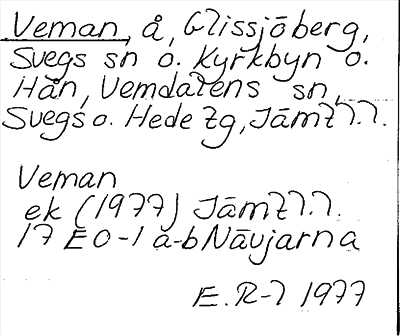 Veman, å, Glissjöberg,
Svegs sn o. Kyrkbyn o.
Hån, Vemdalens sn,
Svegs o. Hede tg, Jämtl.l.
Veman
ek (1977) Jämtl.l.
17 E 0-1 a-b Nävjarna
E. R-l 1977